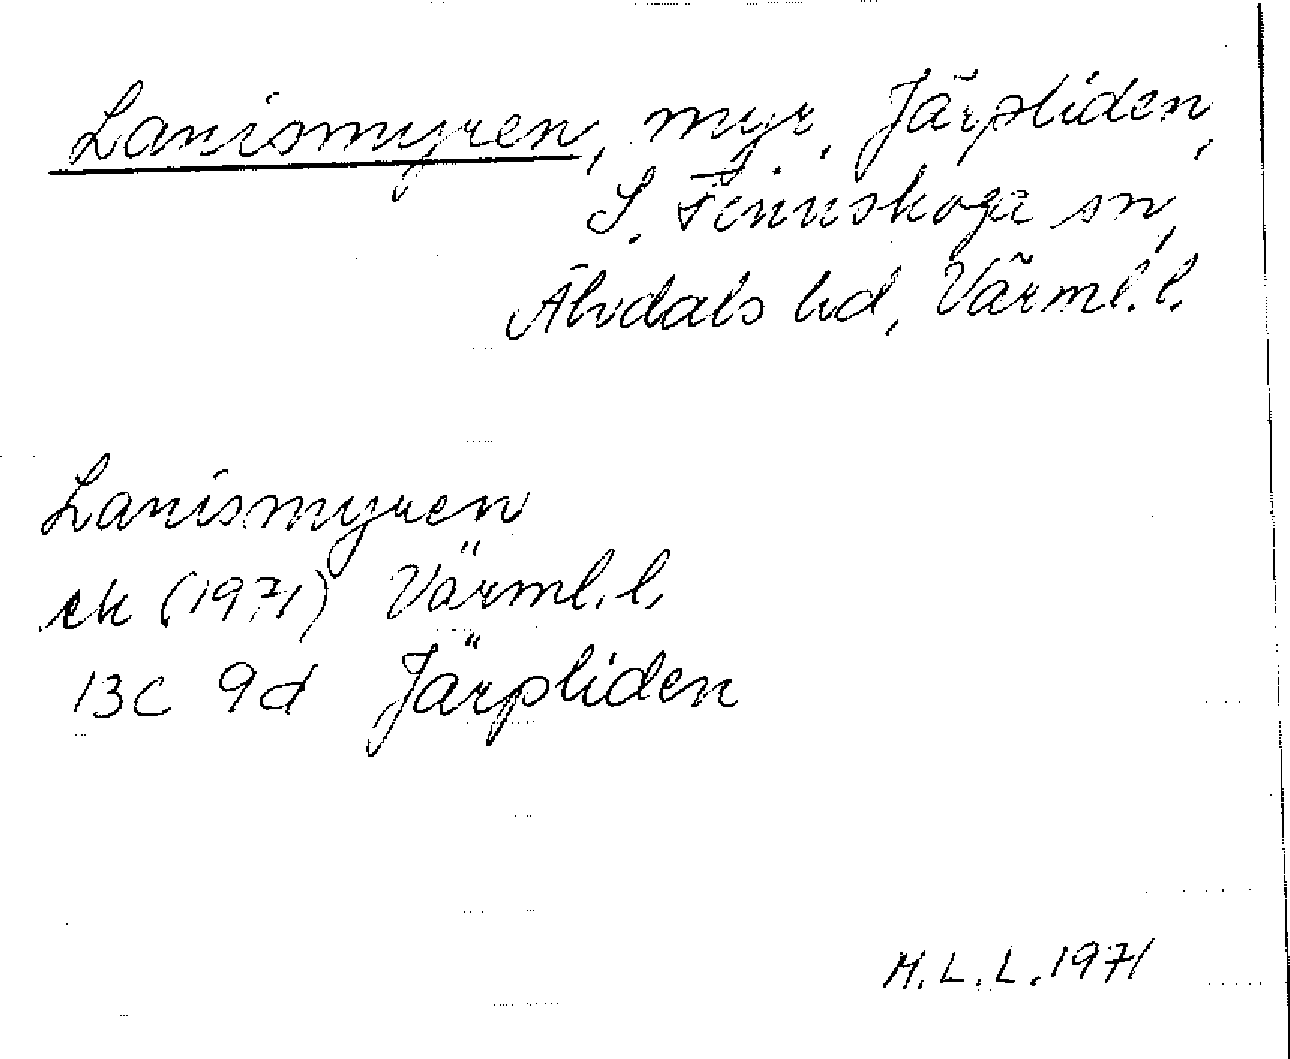 Lanismyren, myr, Järpliden,
S. Finnskoga sn,
Älvdals hd, Värml. l.
Lanismyren
ek (1971) Värml. l.
13C 9d Järpliden
M.L.L. 1971